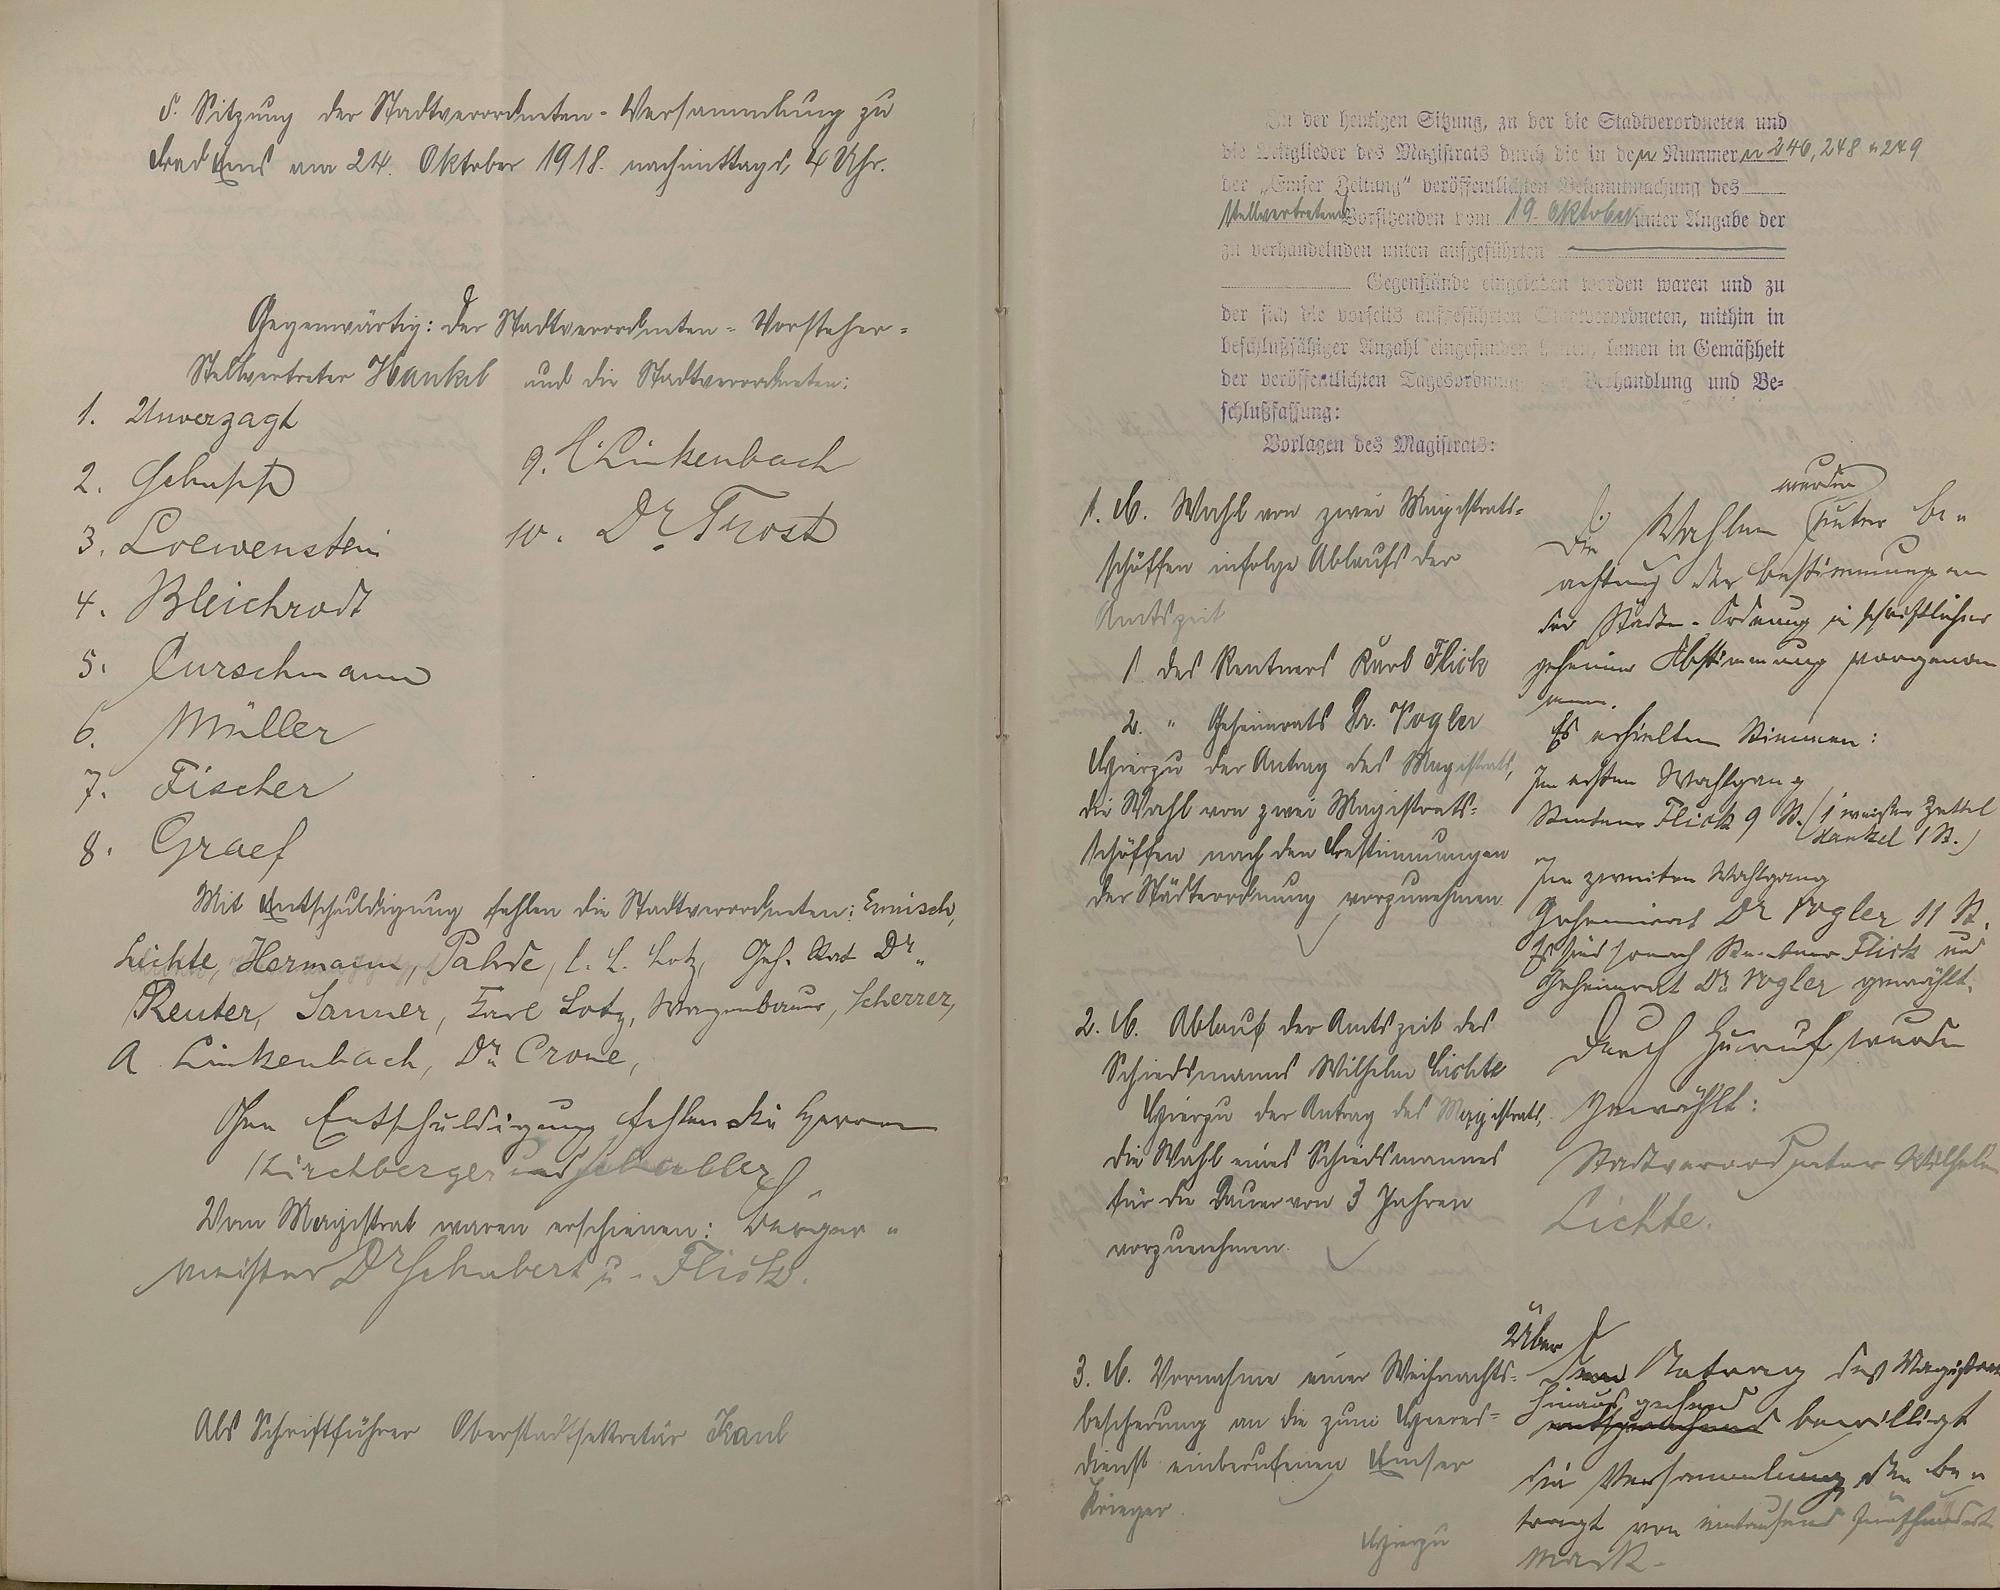 5. Sitzung der Stadtverordneten-Versammlung zu
Bad Ems am 24. Oktober 1918. nachmittags, 4 Uhr.
Gegenwärtig: Der Stadtverordneten-Vorsteher-
Stellvertreter Hankel und die Stadtverordneten:
1. Unverzagt
2. Schupp
3. Loewenstein
4. Bleichrodt
5. Curschmann
6. Müller
7. Fischer
8. Graef
9. C. Linkenbach
10. Dr. Trost
Mit Entschuldigung fehlen die Stadtverordneten: Ermisch,
Lichte, Hermann, Pahde, C. L. Lotz, Geh. Rat Dr.
Reuter, Sanner, Karl Lotz, Wagenbauer, Scherrer,
A Linkenbach, Dr. Crone,
Ohne Entschuldigung fehlen die Herren
Kirchberger und Schaller
Vom Magistrat waren erschienen: Bürger-
meister Dr Schubert u. Flick.
Als Schriftführer Oberstadtsekretär Kaul
In der heutigen Sitzung, zu der die Stadtverordneten und
die Mitglieder des Magistrats durch die in den Nummern 246, 248 u 249
der „Emser Zeitung“ veröffentlichten Bekanntmachung des
stellvertretend Vorsitzenden vom 19. Oktober unter Angabe der
zu verhandelnden unten aufgeführten
Gegenstände eingeladen worden waren und zu
der sich die vorseits aufgeführten Stadtverordneten, mithin in
beschlußfähiger Anzahl eingefunden hatten, kamen in Gemäßheit
der veröffentlichten Tagesordnung zur Verhandlung und Be-
schlußfassung:
Vorlagen des Magistrats:
1. B. Wahl von zwei Magistrats-
schöffen infolge Ablaufs der
Amtszeit
1. des Rentners Karl Flick
2. " Geheimrats Dr. Vogler
Hierzu der Antrag des Magistrats,
die Wahl von zwei Magistrats-
schöffen nach den Bestimmungen
der Städteordnung vorzunehmen.
wurden
Die Wahlen unter Be-
achtung der Bestimmungen
der Städte-Ordnung in schriftlicher
geheimer Abstimmung vorgenom
men.
Es erhielten Stimmen:
Im ersten Wahlgang
Rentner Flick 9 St. (1 weißer Zettel
Hankel 1 St.)
Im zweiten Wahlgang
Geheimrat Dr Vogler 11 St.
Es sind sonach Rentner Flick und
Geheimrat Dr. Vogler gewählt.
2. B. Ablauf der Amtszeit des
Schiedsmanns Wilhelm Lichte
Hierzu der Antrag des Magistrats,
die Wahl eines Schiedsmannes
für die Dauer von 3 Jahren
vorzunehmen.
Durch Zuruf wurde
gewählt:
Stadtverordneter Wilhelm
Lichte.
3. B. Vornahme einer Weihnachts-
bescherung an die zum Heeres-
dienst einberufenen Emser
Krieger.
Hierzu
Über
den Antrag des Magistrats
hinausgehend
entsprechend bewilligt
die Versammlung den Be-
tragt von eintausend fünfhundert
Mark.